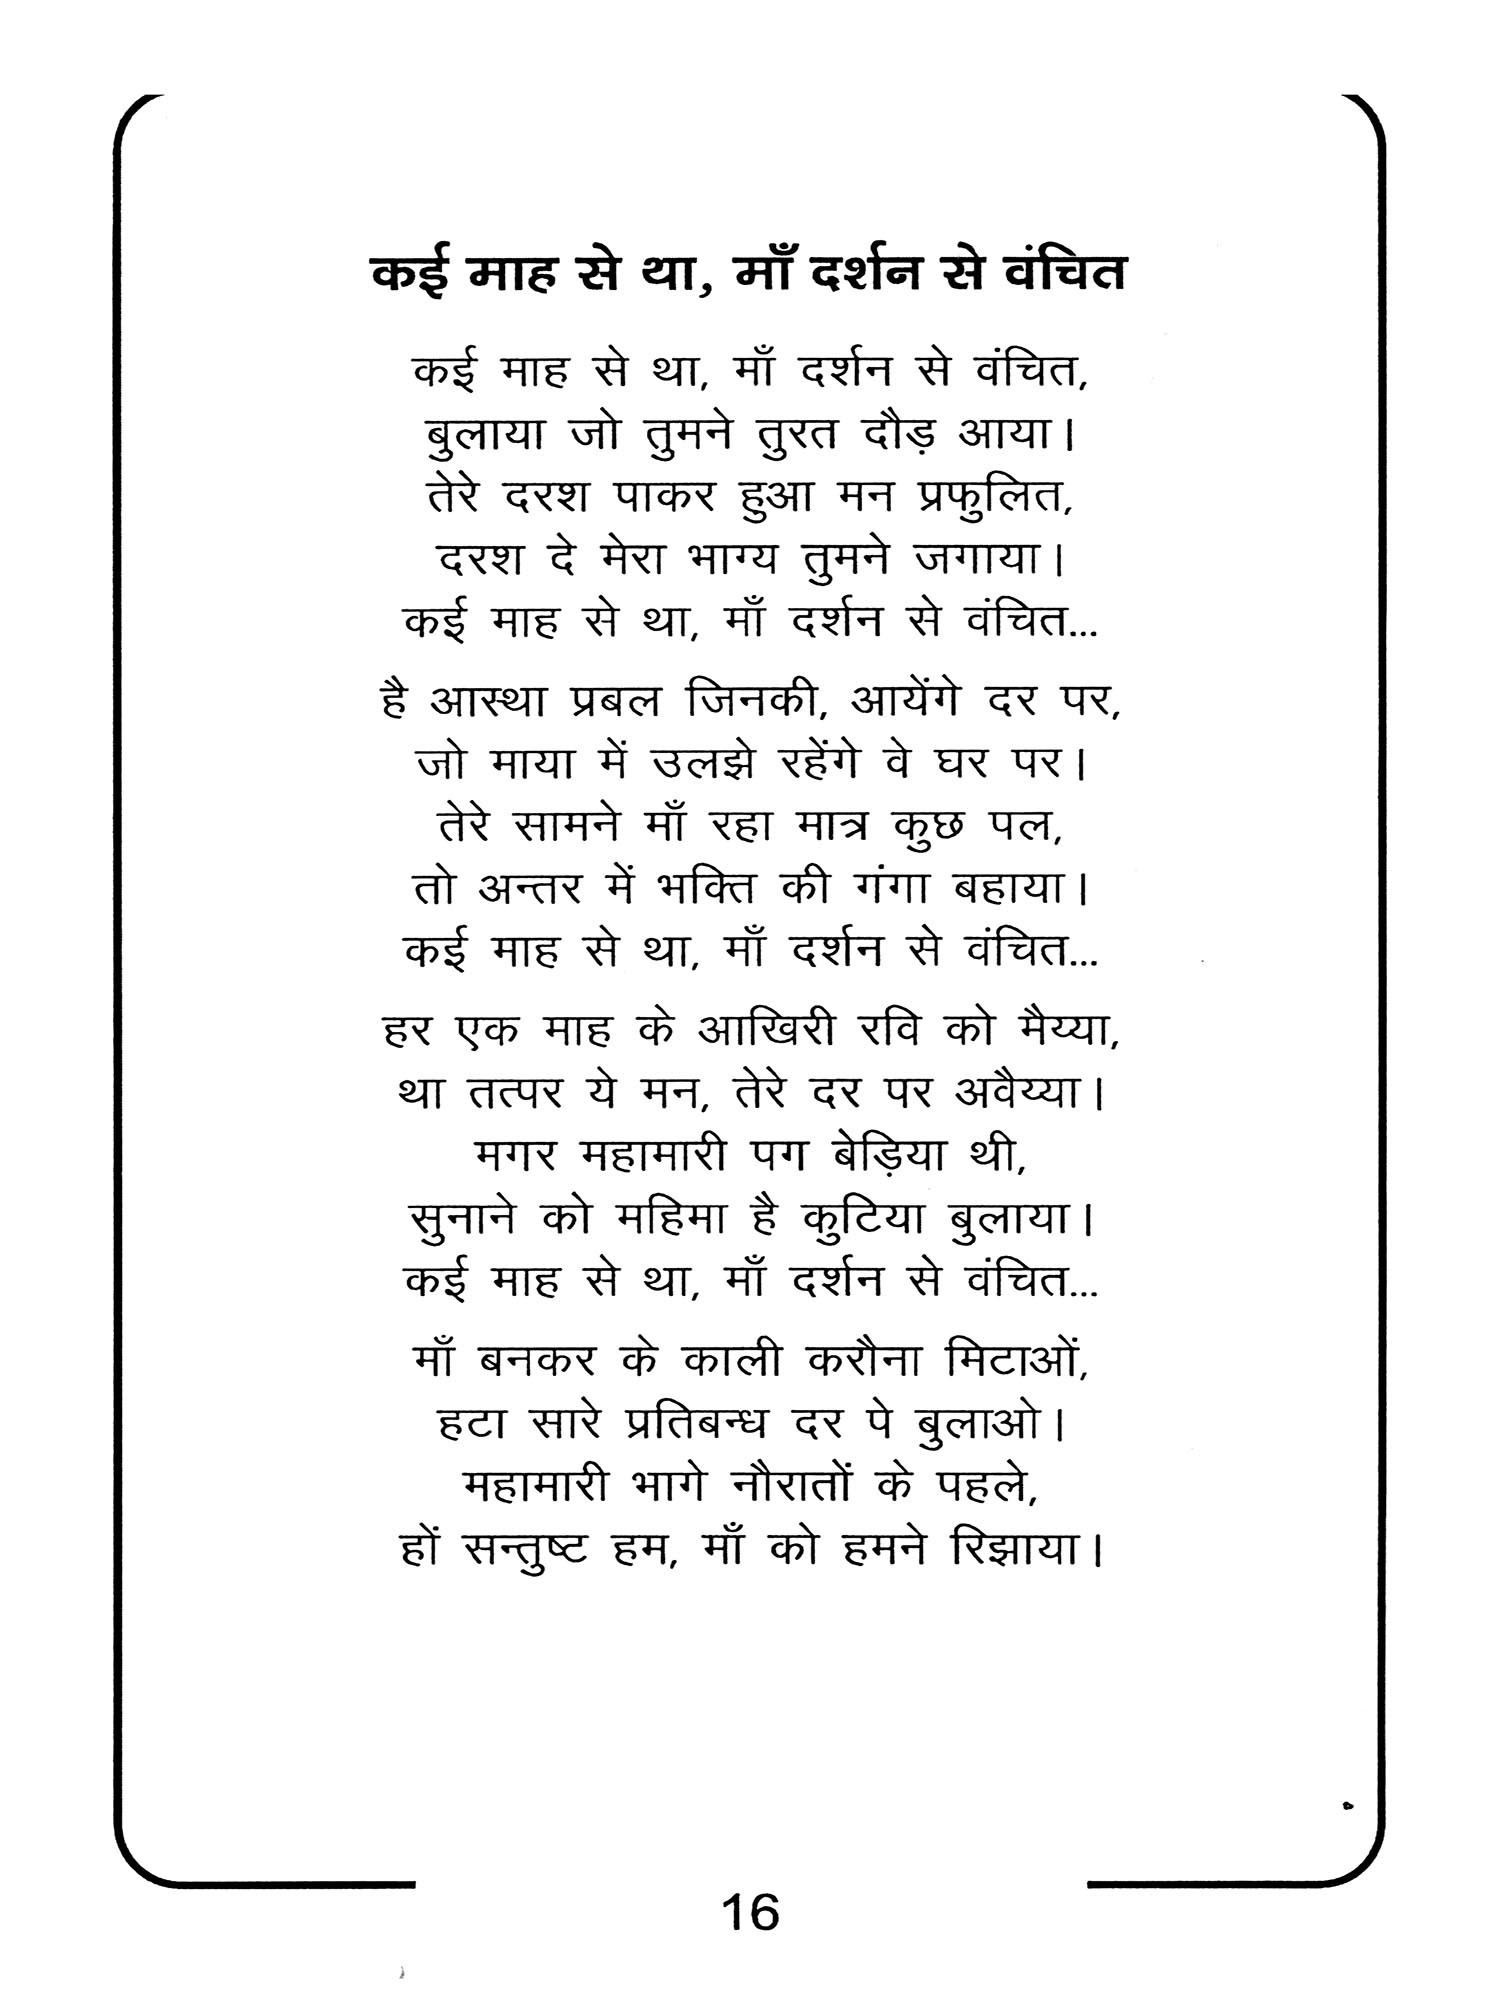 कई माह से था, माँ दर्शन से वंचित
कई माह से था, माँ दर्शन से वंचित,
बुलाया जो तुमने तुरत दौड़ आया।
तेरे दरश पाकर हुआ मन प्रफुलित,
दरश दे मेरा भाग्य तुमने जगाया।
कई माह से था, माँ दर्शन से वंचित...
है आस्था प्रबल जिनकी, आयेंगे दर पर,
जो माया में उलझे रहेंगे वे घर पर।
तेरे सामने माँ रहा मात्र कुछ पल,
तो अन्तर में भक्ति की गंगा बहाया।
कई माह से था, माँ दर्शन से वंचित...
हर एक माह के आखिरी रवि को मैय्या,
था तत्पर ये मन, तेरे दर पर अवैय्या।
मगर महामारी पग बेड़िया थी,
सुनाने को महिमा है कुटिया बुलाया।
कई माह से था, माँ दर्शन से वंचित...
माँ बनकर के काली करौना मिटाओं,
हटा सारे प्रतिबन्ध दर पे बुलाओ।
महामारी भागे नौरातों के पहले,
हों सन्तुष्ट हम, माँ को हमने रिझाया।
16